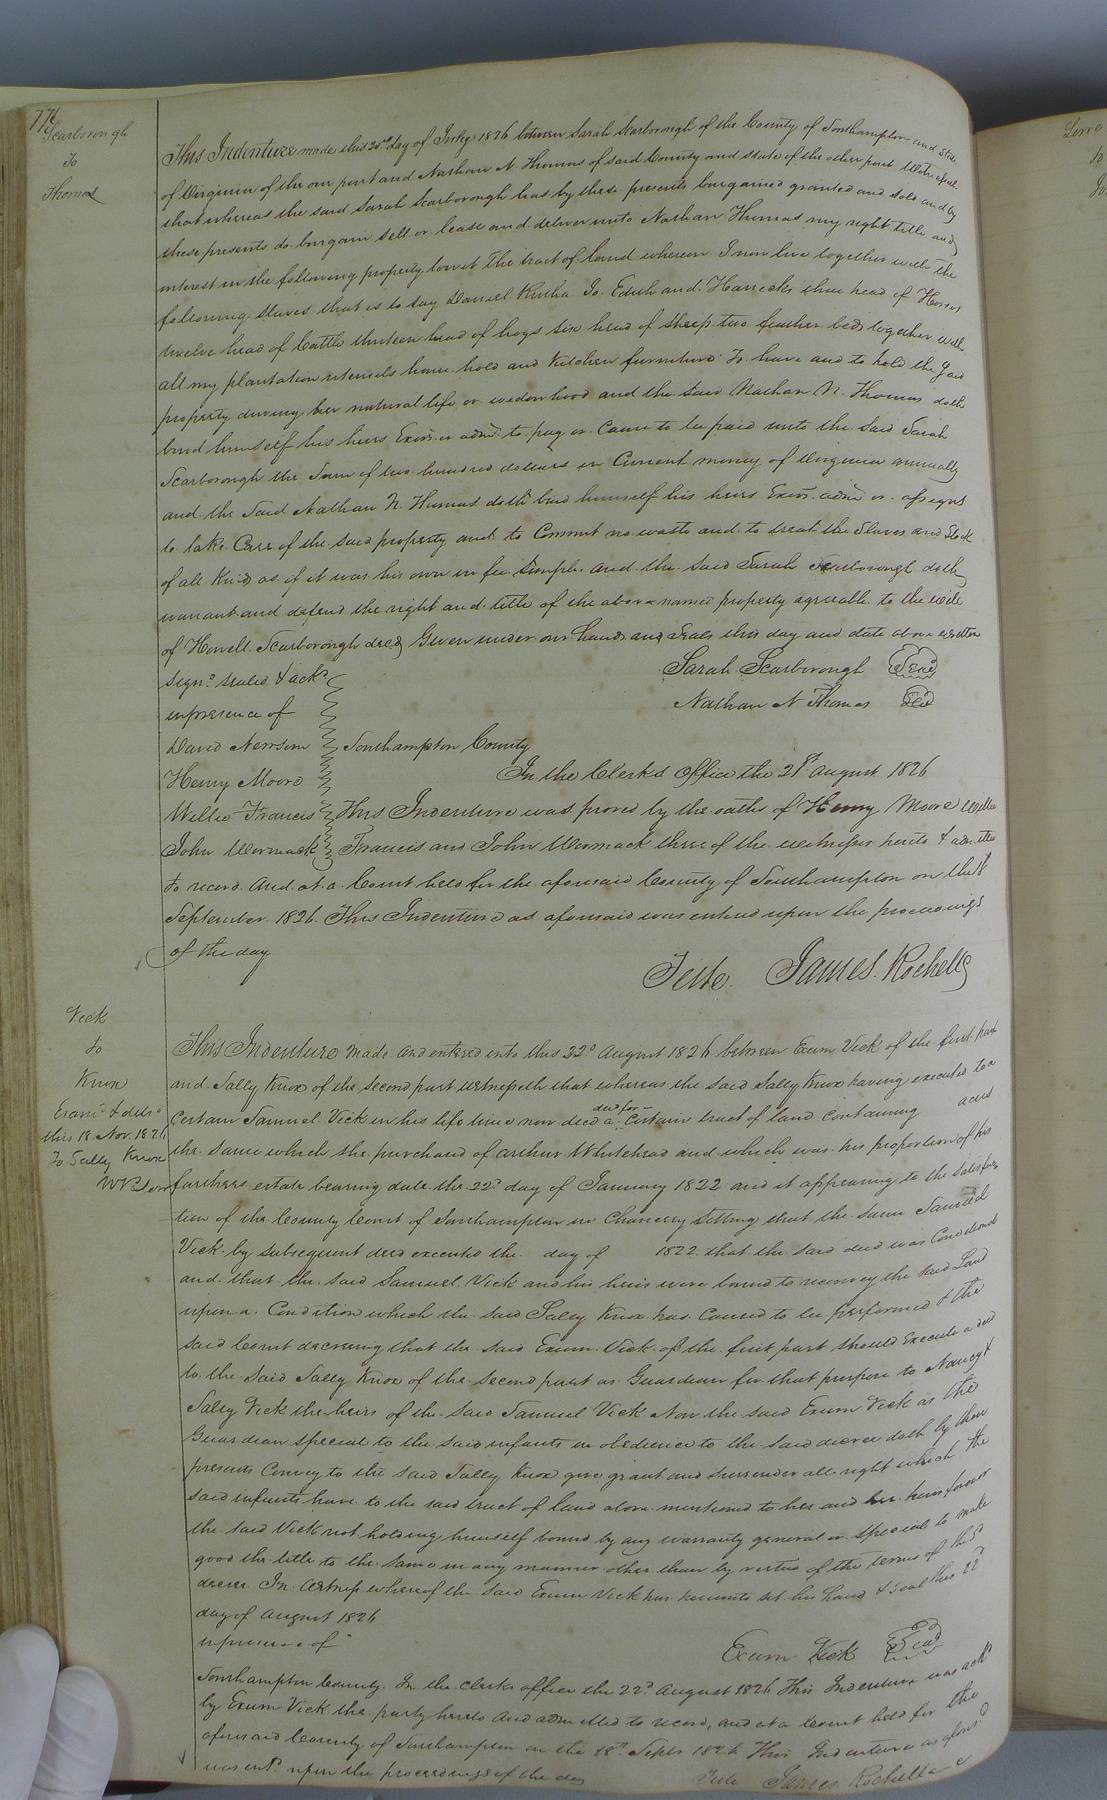 Scarborough
To
Thomas
This Indenture made this day of July 1826 between Sarah Scarborough of the County of Southampton and State
of Virginia of the one part and Nathan N Thomas of said County and state of the other part Witnesseth
that whereas the said Sarah Scarborough has by these presents bargained granted and sold and by
these presents do bargain sell or lease and deliver unto Nathan Thomas my right title and
interest in the following property towit the tract of land whereon I now live together with the
following slaves that is to say Daniel Jo. Edith and three head of Horses
twelve head of Cattle thirteen head of hogs six head of sheep two feather beds together with
all my plantation utensils house hold and Kitchen furniture To have and to hold the said
property during her natural life or widowhood and the said Nathan N. Thomas doth
bind himself his heirs Exors. or adms. to pay or Cause to be paid unto the said Sarah
Scarborough the Sum of two hundred dollars in Current money of Virginia annually
and the said Nathan N. Thomas doth bind himself his heirs Exors. adms or assigns
to take Care of the said property and to Commit no waste and to treat the Slaves and Stock
of all Kind as if it was his own in fee Simple. and the said Sarah Scarborough doth
warrant and defend the right and title of the above named property agreeable to the will
of Howell Scarborough decd Given under our hands and Seals this day and date above written
Signd. sealed & ackd
Sarah Scarborough Seal
in presence of
Nathan N Thomas Seal
David Newsom
Southampton County
Henry Moore
In the Clerk's Office the 21st August 1826
Willie Francis
This Indenture was proved by the oaths of Henry Moore Willie
John Wormack
Francis and John Wormack three of the witnesses hereto & admitted
to record And at a Court held for the aforesaid County of Southampton on the
September 1826. This Indenture as aforesaid was entered upon the proceedings
of the day
Teste. James. Rochelle
Vick
to
Knox
Examd & deld
this 18 Nov. 1826
To Sally Knox
This Indenture made and entered into this 22d August 1826 between Exum Vick of the first part
and Sally Knox of the second part witnesseth that whereas the said Sally Knox having executed to a
Certain Samuel Vick in his life time now decd a deed for Certain tract of land Containing acres
the same which she purchased of Arthur Whitehead and which was his proportion of his
farthers estate bearing date the 22d day of January 1822 and it appearing to the satisfac
tion of the County Court of Southampton in Chancery Sitting that the same Samuel
Vick by subsequent deed executed the day of 1822 that the said deed was Conditional
and that the said Samuel Vick and his heirs were bound to reconvey the said Land
upon a Condition which the said Sally Knox has Caused to be performed & the
said Court decreeing that the said Exum Vick of the first part should Execute a deed
to the said Sally Knox of the second part as Guardian for that purpose to Nancy &
Sally Vick the heirs of the said Samuel Vick Now the said Exum Vick as the
Guardian special to the said infants in obedience to the said decree doth by these
presents Convey to the said Sally Knox give grant and surrender all right which the
said infants have to the said tract of land above mentioned to her and her heirs forever
the said Vick not holding himself bound by any warranty general or special to make
good the title to the same in any manner other than by virtue of the terms of the sd
decree In Witness whereof the said Exum Vick has hereunto set his hand & seal this 22d
day of August 1826
in presence of
Exum Vick Seal
Southampton County. In the clerks office the 22d August 1826 This Indenture was ackd
by Exum Vick the party hereto and admitted to record, and at a Court held for the
aforesaid County of Southampton on the 18th Septr 1826 This Indenture as aforesd
was entd upon the proceedings of the day
Teste James Rochelle